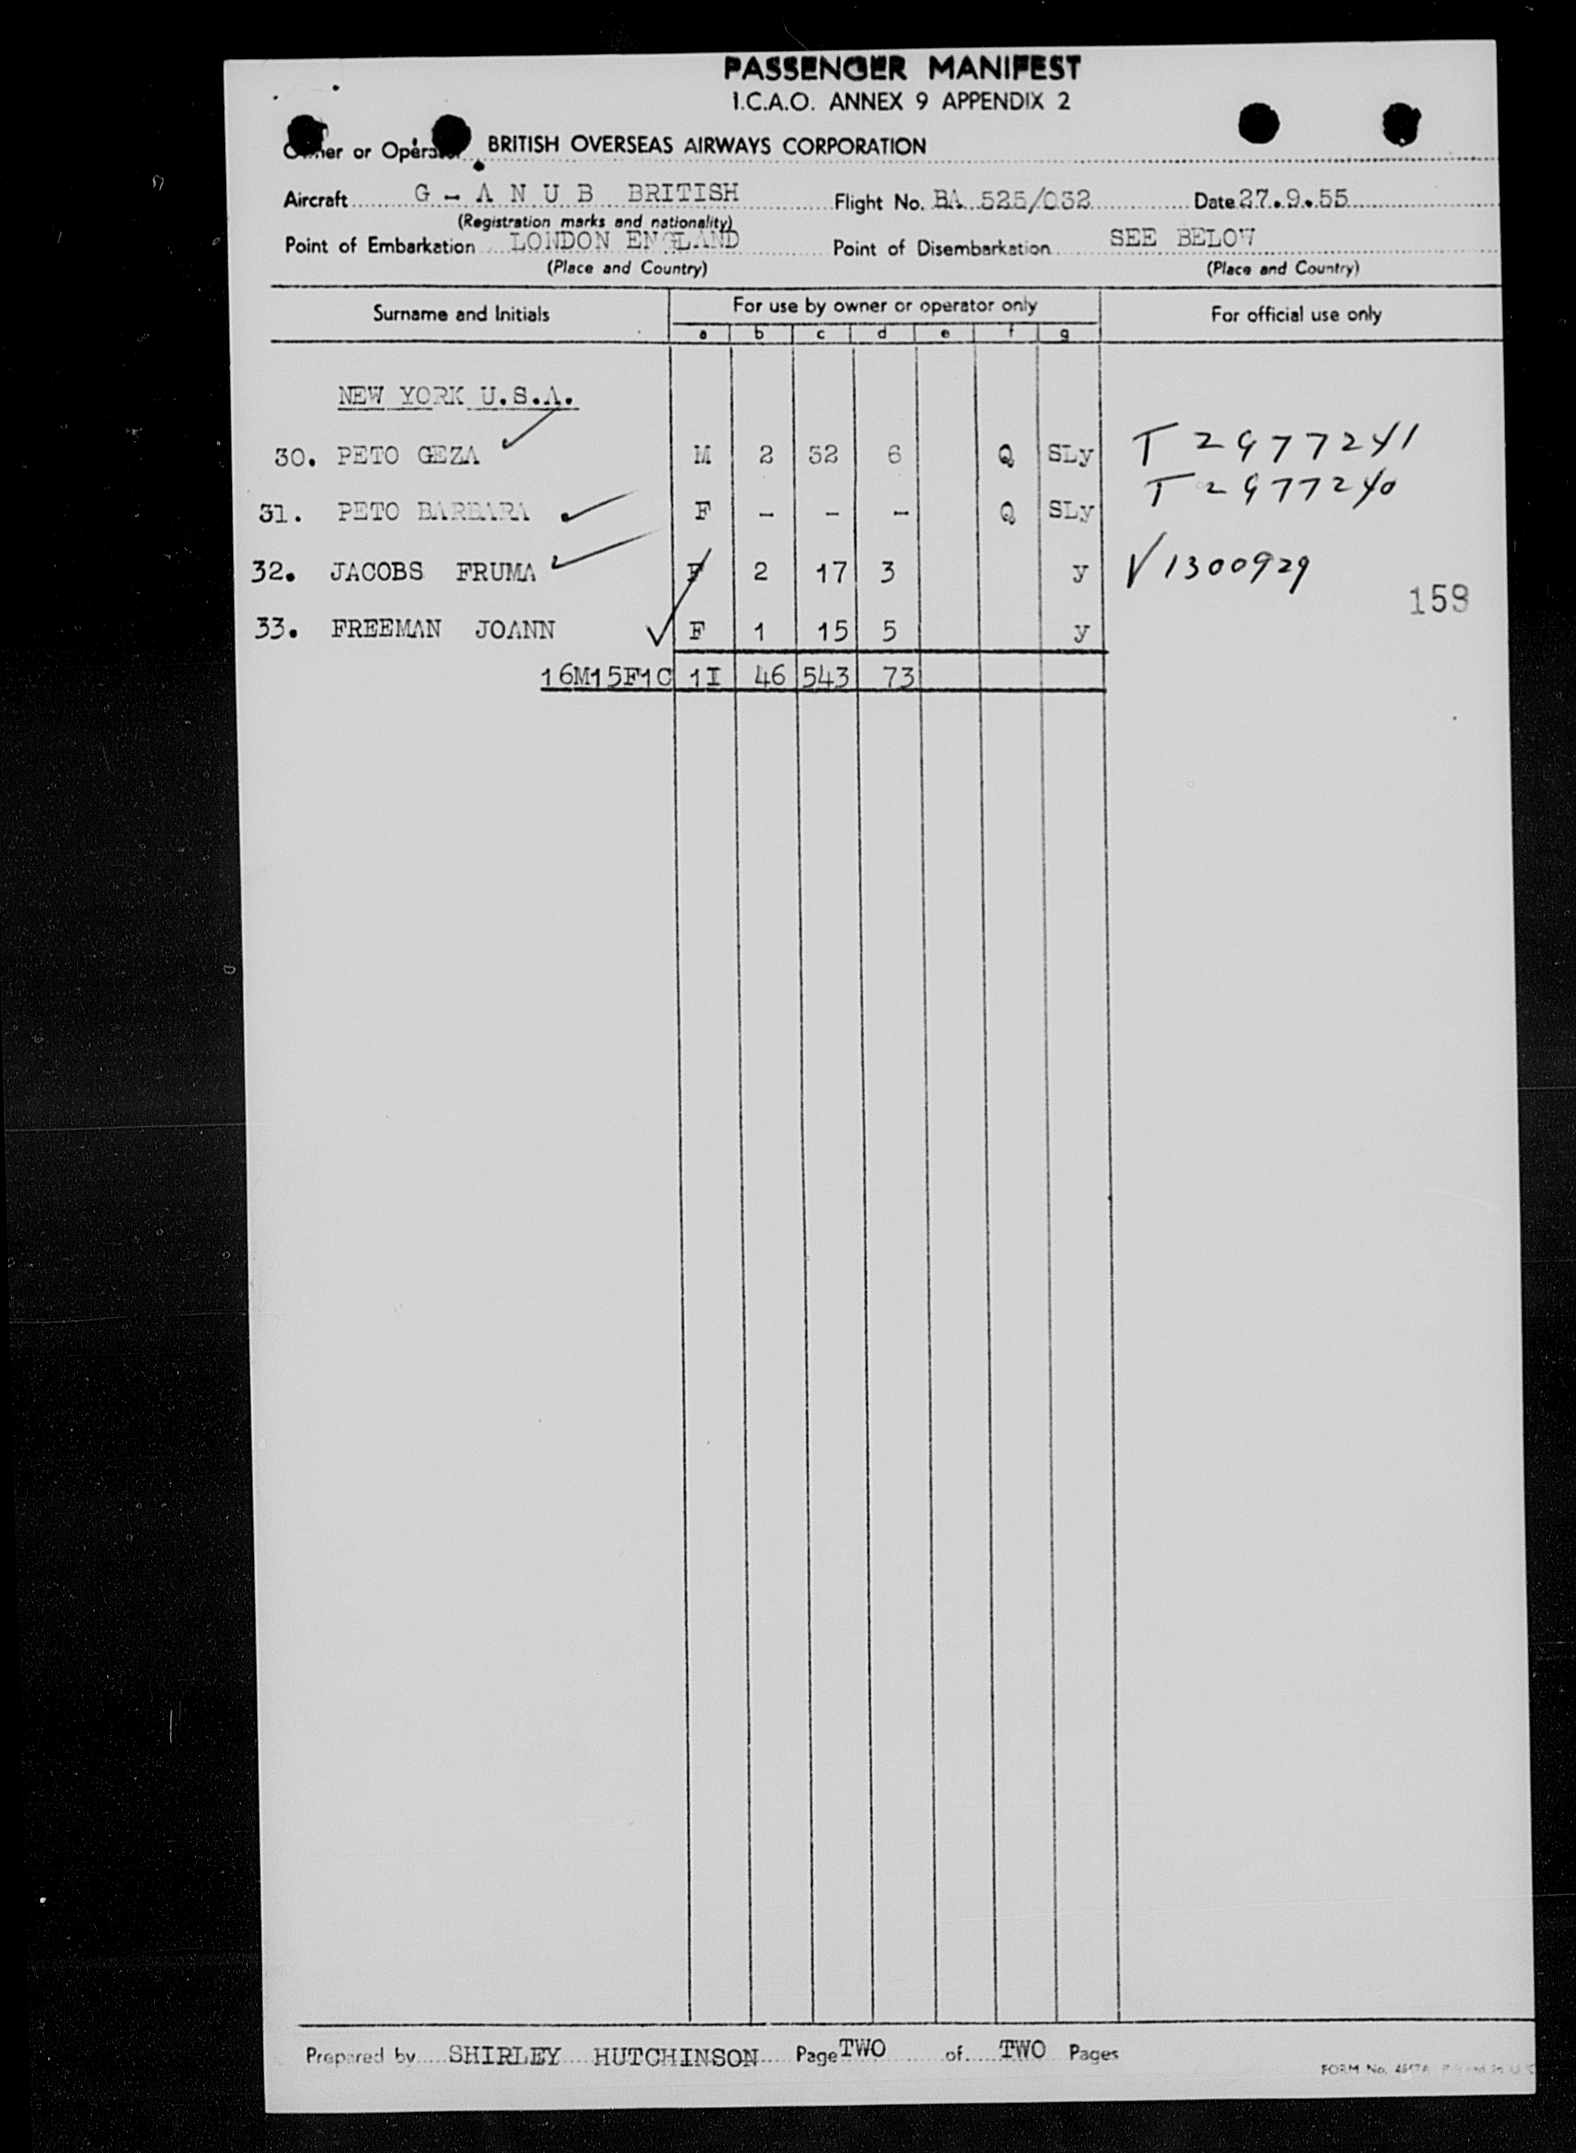 PASSENGER MANIFEST
I.C.A.O. ANNEX 9 APPENDIX 2
Owner or Operator BRITISH OVERSEAS AIRWAYS CORPORATION
Aircraft G - A N U B BRITISH Flight No. BA 525/032 Date 27.9.55
(Registration marks and nationality)
Point of Embarkation LONDON ENGLAND Point of Disembarkation SEE BELOW
(Place and Country) (Place and Country)
Surname and Initials For use by owner or operator only For official use only
a b c d e f g
NEW YORK U.S.A.
30. PETO GEZA M 2 52 6 Q SLy T 2977241
T 2977240
31. PETO BARBARA F - - - Q SLy
32. JACOBS FRUMA F 2 17 3 y V 1300929
159
33. FREEMAN JOANN F 1 15 5 y
16M15F1C 1I 46 543 73
Prepared by SHIRLEY HUTCHINSON Page TWO of TWO Pages
FORM No.